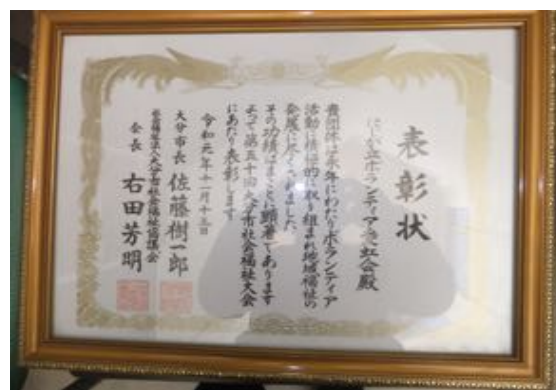 表彰状
ボランティア虹会殿
貴団体は永年にわたりボランティア
活動に積極的に取り組まれ地域福祉の
発展に尽くされました
その功績はまことに顕著であります
よって第五十回大分市社会福祉大会
にあたり表彰します
令和元年十一月十三日
大分市長 佐藤樹一郎
社会福祉法人大分市社会福祉協議会
会長 右田芳明